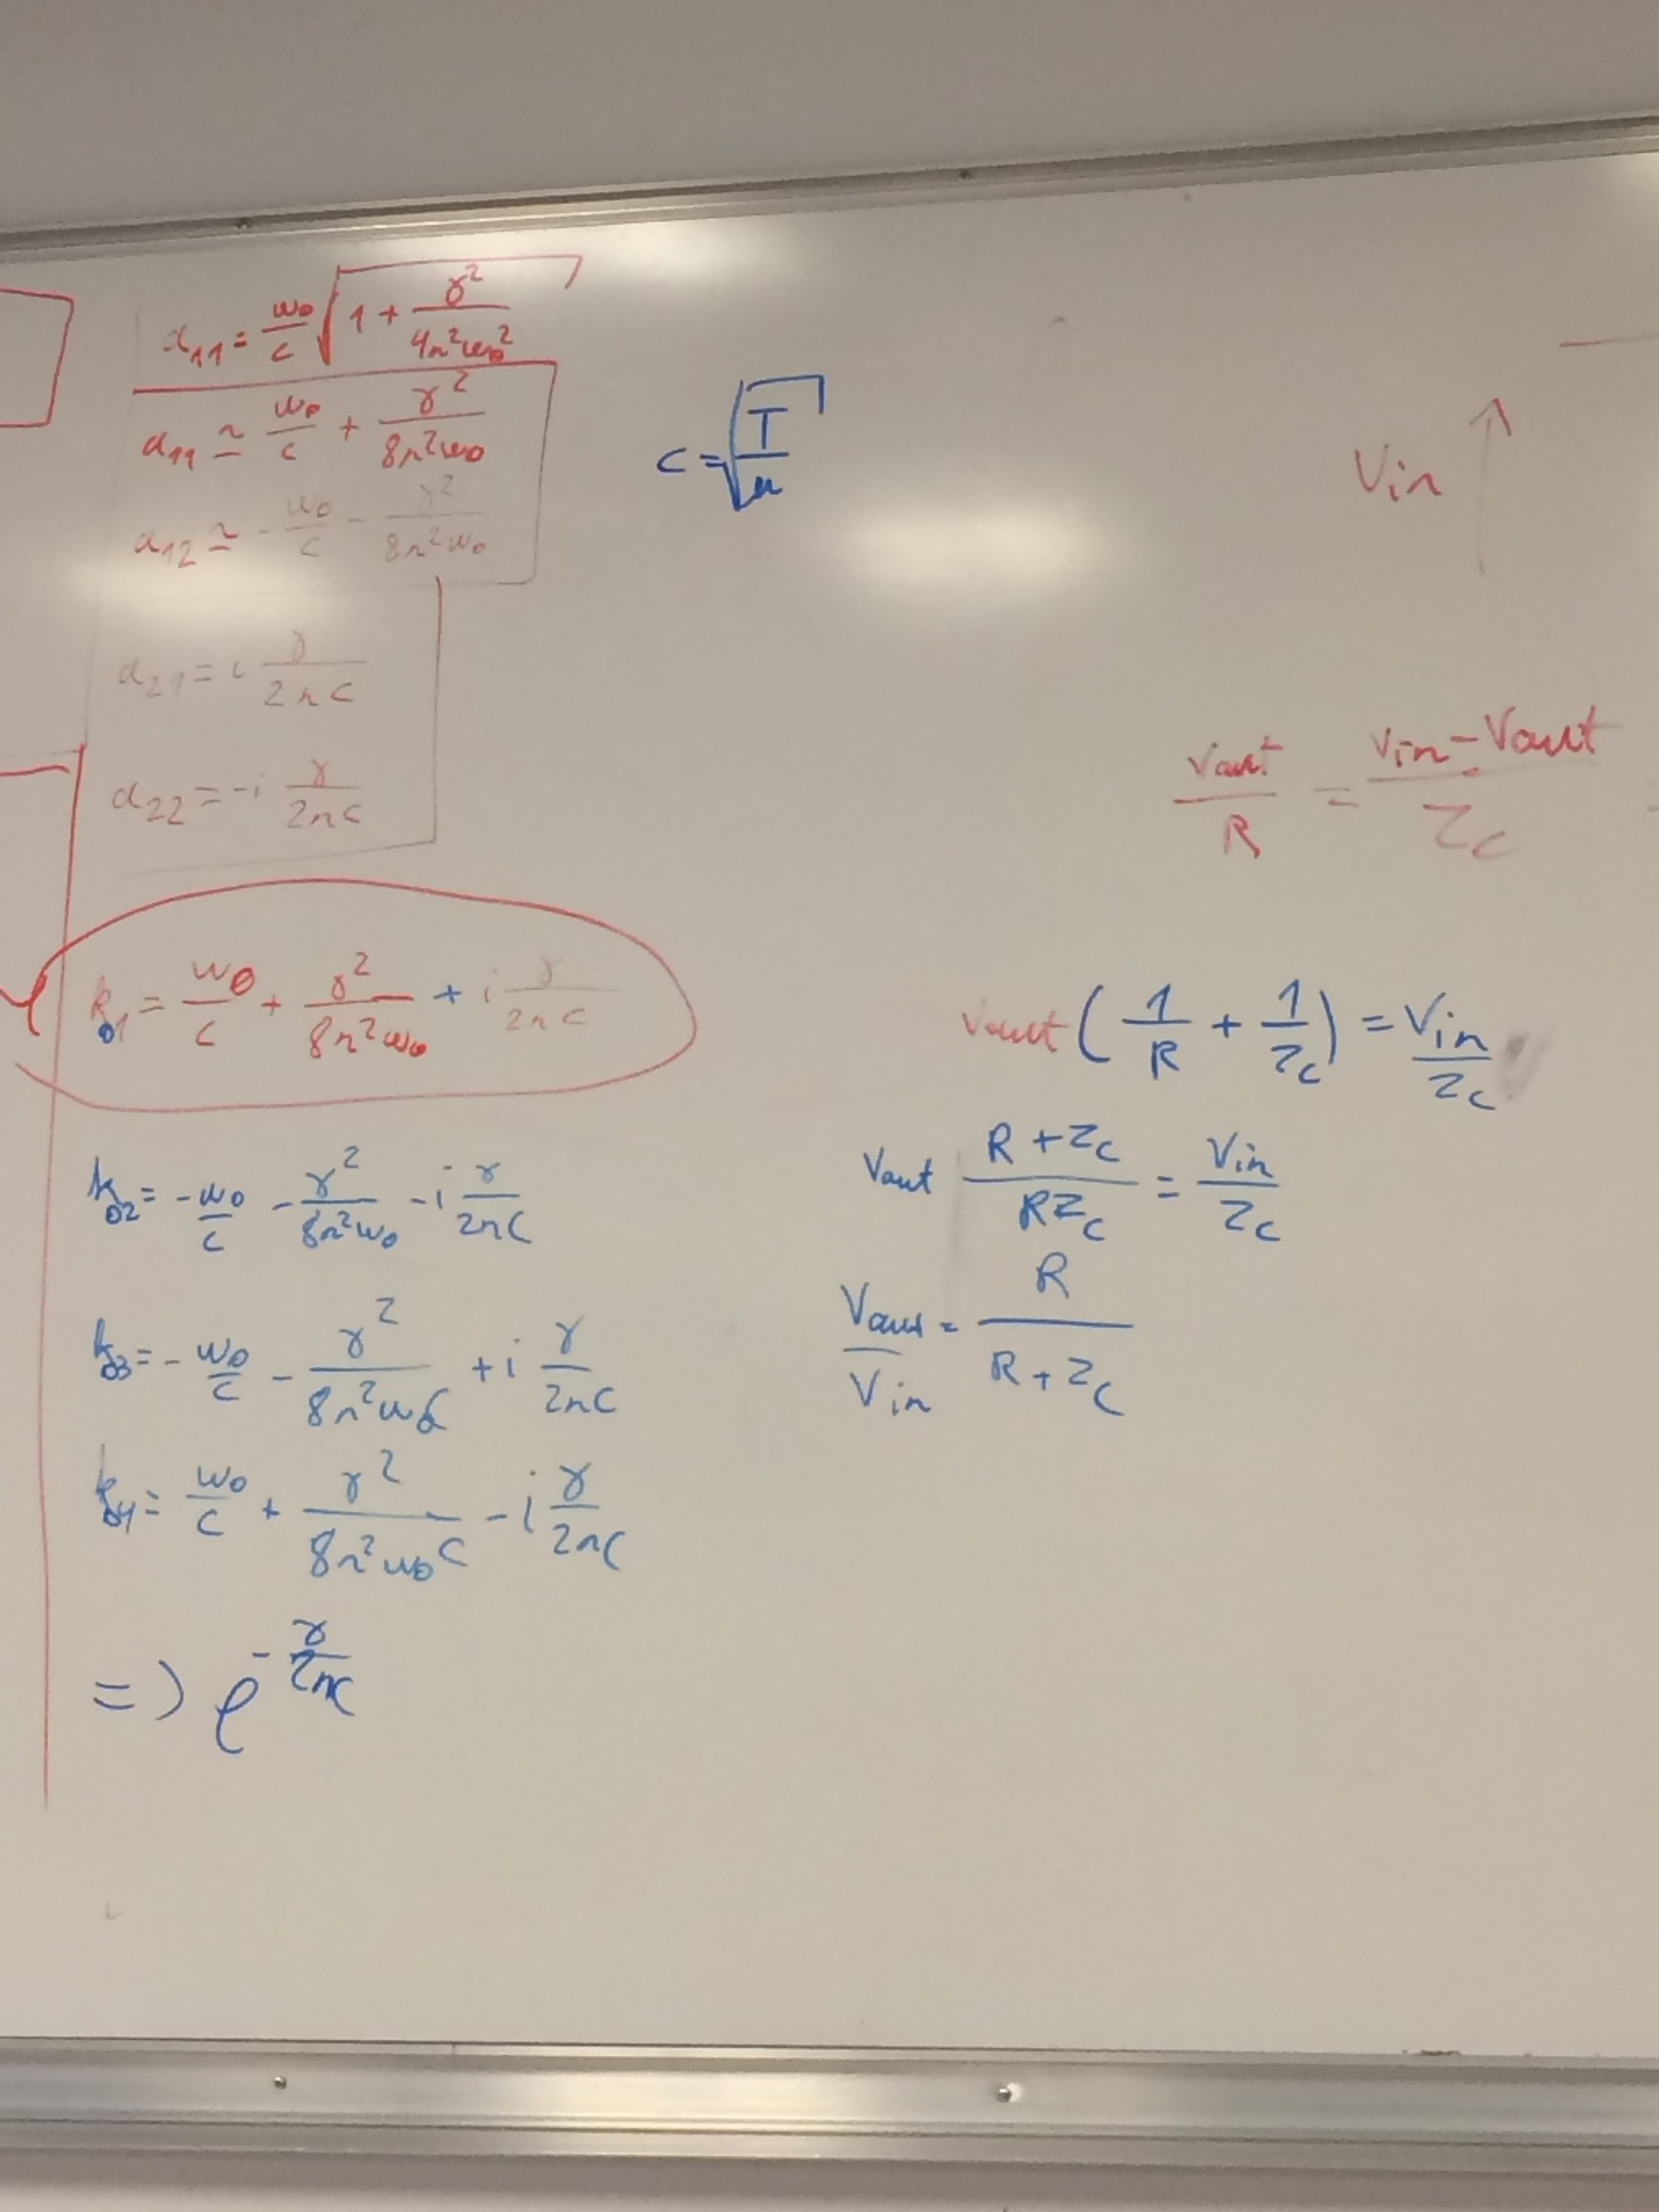 α₁₁ = ω₀/c √(1 + γ²/(4n²ω₀²))
α₁₁ ≃ ω₀/c + γ²/(8n²ω₀)
α₁₂ ≃ -ω₀/c - γ²/(8n²ω₀)
α₂₁ = i γ/(2nc)
α₂₂ = -i γ/(2nc)
k₀₁ = ω₀/c + γ²/(8n²ω₀) + i γ/(2nc)
k₀₂ = -ω₀/c - γ²/(8n²ω₀) - i γ/(2nc)
k₀₃ = -ω₀/c - γ²/(8n²ω₀c) + i γ/(2nc)
k₀₄ = ω₀/c + γ²/(8n²ω₀c) - i γ/(2nc)
=> e^(-γ/(2nc))
c = √(T/μ)
Vin ↑
Vout/R = (Vin - Vout)/Zc =
Vout (1/R + 1/Zc) = Vin/Zc
Vout (R + Zc)/(RZc) = Vin/Zc
Vout/Vin = R/(R + Zc)